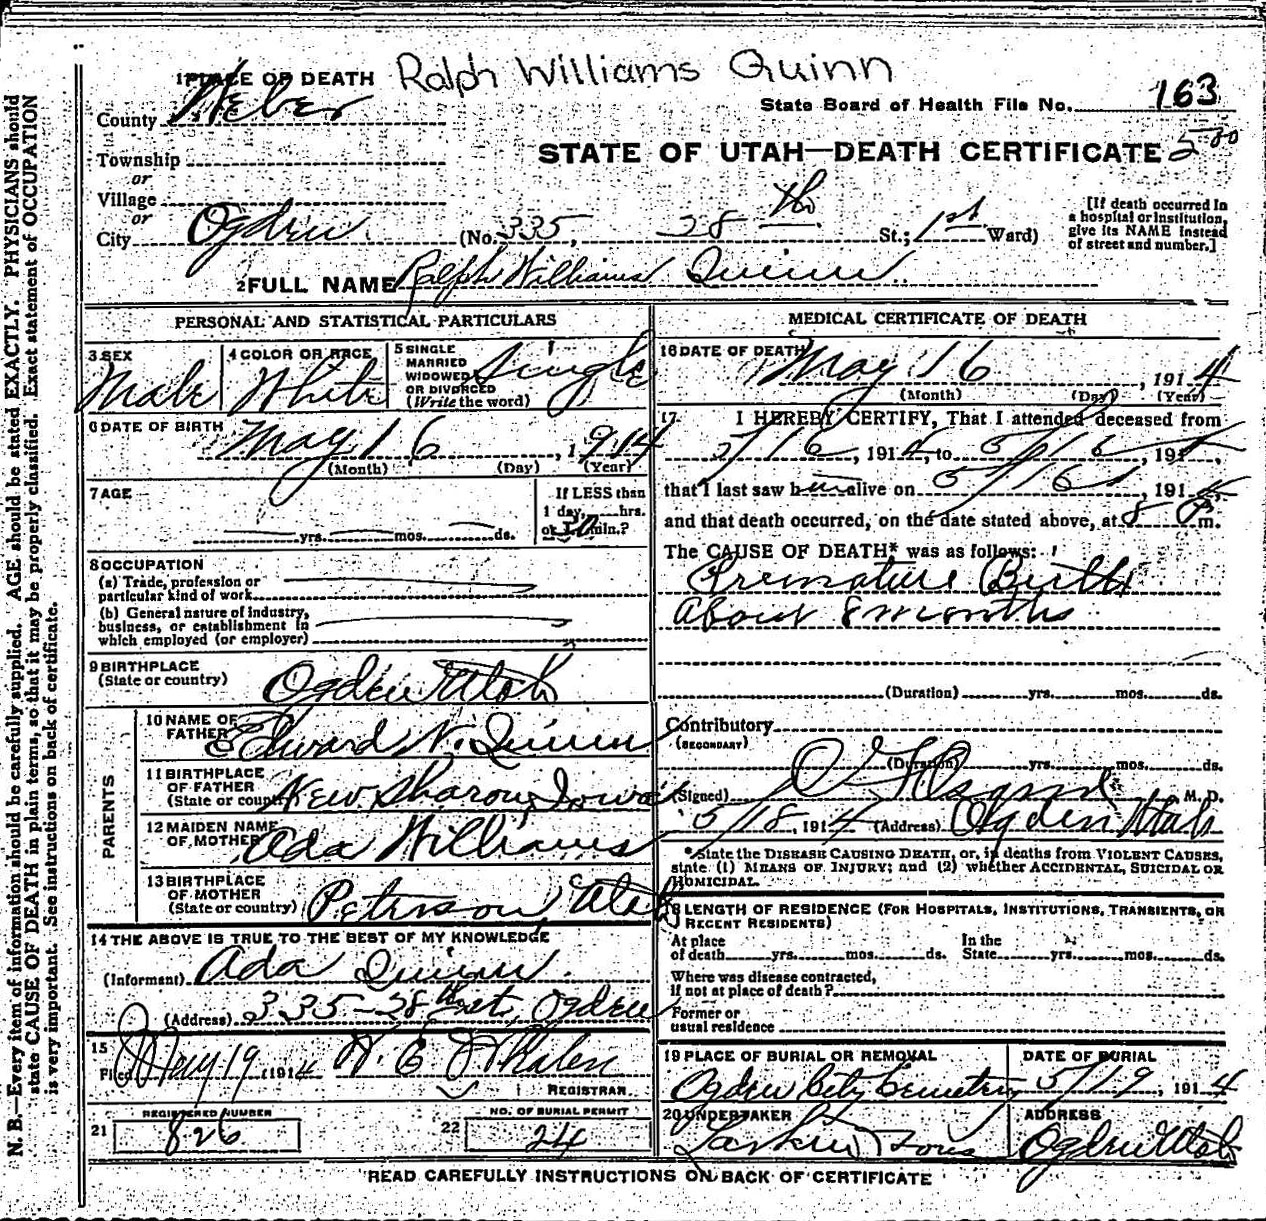 Ralph Williams Quinn
1 PLACE OF DEATH
State Board of Health File No. 163
County Weber
STATE OF UTAH—DEATH CERTIFICATE
Township
or
Village
or
City Ogden (No. 335, 28th St.; 1st Ward)
[If death occurred in
a hospital or institution,
give its NAME instead
of street and number.]
2 FULL NAME Ralph Williams Quinn
PERSONAL AND STATISTICAL PARTICULARS
3 SEX
Male
4 COLOR OR RACE
White
5 SINGLE
MARRIED
WIDOWED
OR DIVORCED
(Write the word)
Single
6 DATE OF BIRTH
May 16, 1914
(Month) (Day) (Year)
7 AGE
yrs. mos. ds.
If LESS than
1 day, hrs.
or 30 min.?
8 OCCUPATION
(a) Trade, profession or
particular kind of work
(b) General nature of industry,
business, or establishment in
which employed (or employer)
9 BIRTHPLACE
(State or country)
Ogden Utah
PARENTS
10 NAME OF
FATHER
Edward N. Quinn
11 BIRTHPLACE
OF FATHER
(State or country)
New Sharon, Iowa
12 MAIDEN NAME
OF MOTHER
Ada Williams
13 BIRTHPLACE
OF MOTHER
(State or country)
Peterson, Utah
14 THE ABOVE IS TRUE TO THE BEST OF MY KNOWLEDGE
(Informant) Ada Quinn.
(Address) 335-28th st, Ogden
15
Filed May 19, 1914
REGISTRAR
REGISTERED NUMBER
21 826
NO. OF BURIAL PERMIT
22 24
MEDICAL CERTIFICATE OF DEATH
16 DATE OF DEATH
May 16, 1914
(Month) (Day) (Year)
17 I HEREBY CERTIFY, That I attended deceased from
5/16, 1914, to 5/16, 191
that I last saw h alive on 5/16, 191
and that death occurred, on the date stated above, at 8 P m.
The CAUSE OF DEATH* was as follows:
Premature Birth
About 8 months
(Duration) yrs. mos. ds.
Contributory
(SECONDARY)
(Duration) yrs. mos. ds.
(Signed) M. D.
5/18, 1914 (Address) Ogden Utah
*State the DISEASE CAUSING DEATH, or, in deaths from VIOLENT CAUSES,
state (1) MEANS OF INJURY; and (2) whether ACCIDENTAL, SUICIDAL OR
HOMICIDAL.
18 LENGTH OF RESIDENCE (FOR HOSPITALS, INSTITUTIONS, TRANSIENTS, OR
RECENT RESIDENTS)
At place
of death yrs. mos. ds.
In the
State yrs. mos. ds.
Where was disease contracted,
if not at place of death?
Former or
usual residence
19 PLACE OF BURIAL OR REMOVAL
Ogden City Cemetery
DATE OF BURIAL
5/19, 1914
20 UNDERTAKER
Larkin & Sons
ADDRESS
Ogden Utah
READ CAREFULLY INSTRUCTIONS ON BACK OF CERTIFICATE
N. B.—Every item of information should be carefully supplied. AGE should be stated EXACTLY. PHYSICIANS should
state CAUSE OF DEATH in plain terms, so that it may be properly classified. Exact statement of OCCUPATION
is very important. See instructions on back of certificate.